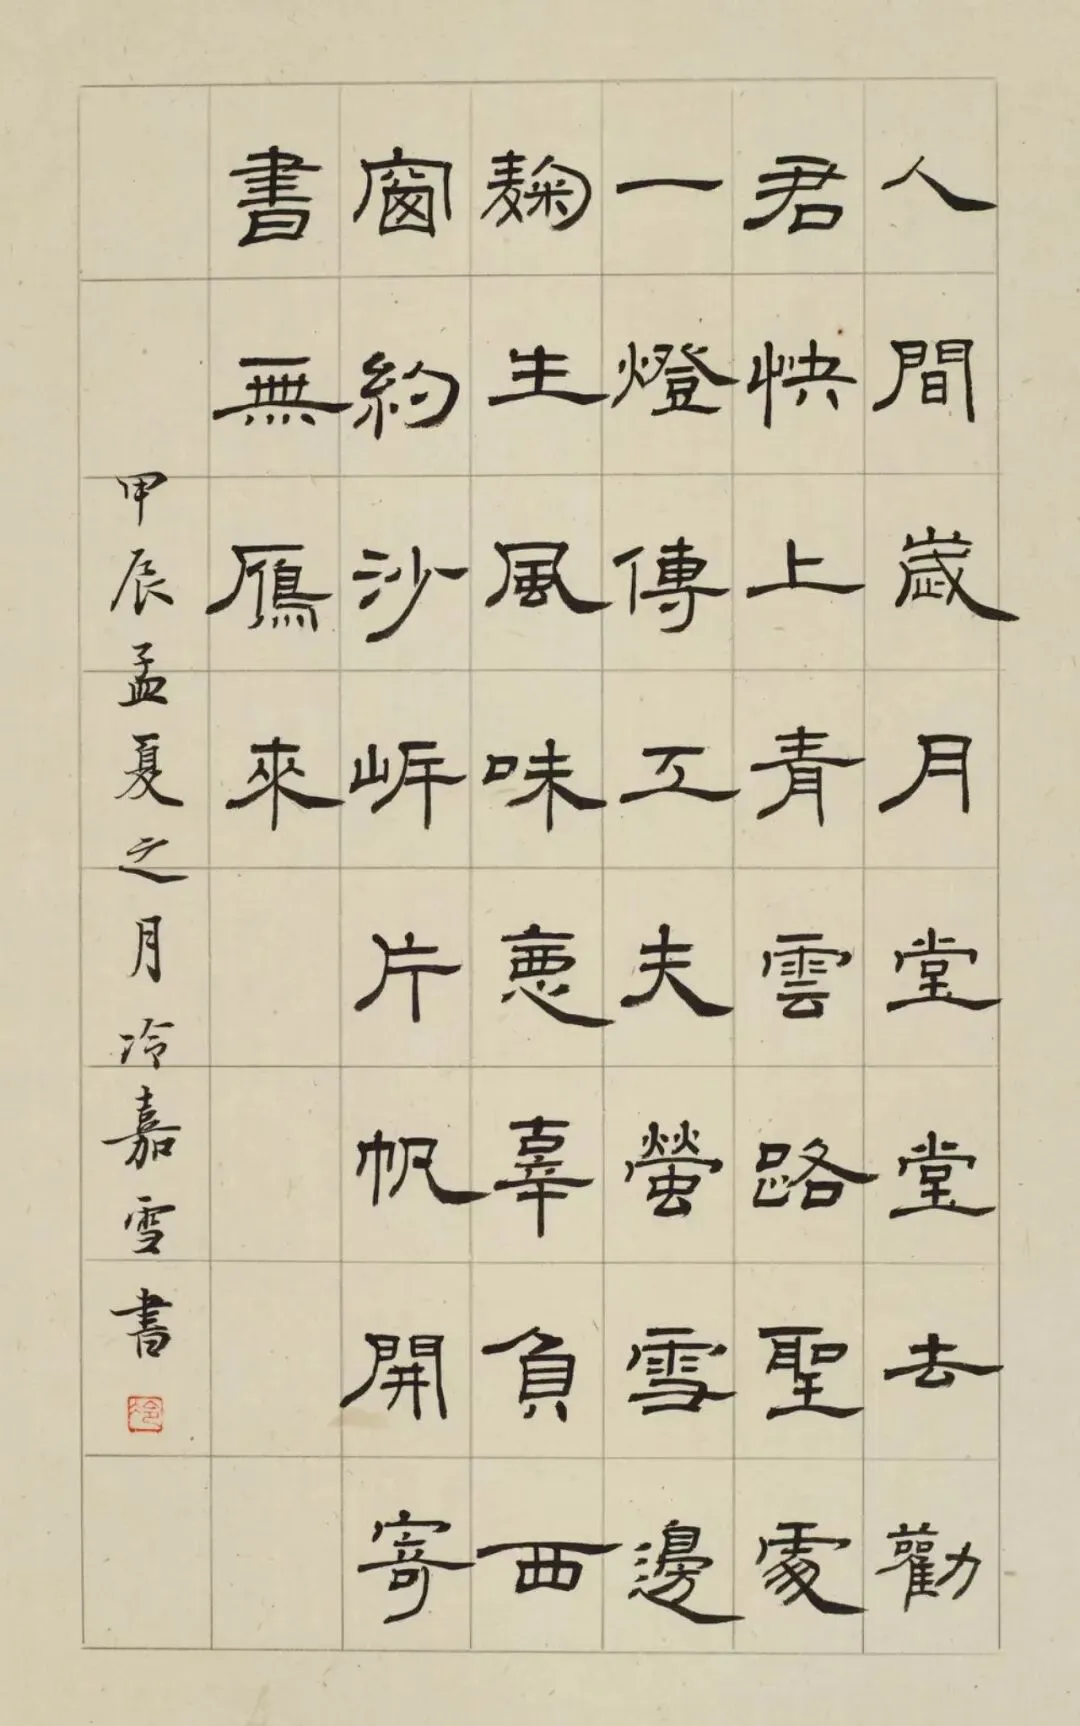 人間歲月堂堂去勸
君快上青雲路聖處
一燈傳工夫螢雪邊
麴生風味惡辜負西
窗約沙岸片帆開寄
書無鴈來
甲辰孟夏之月冷嘉雪書
冷